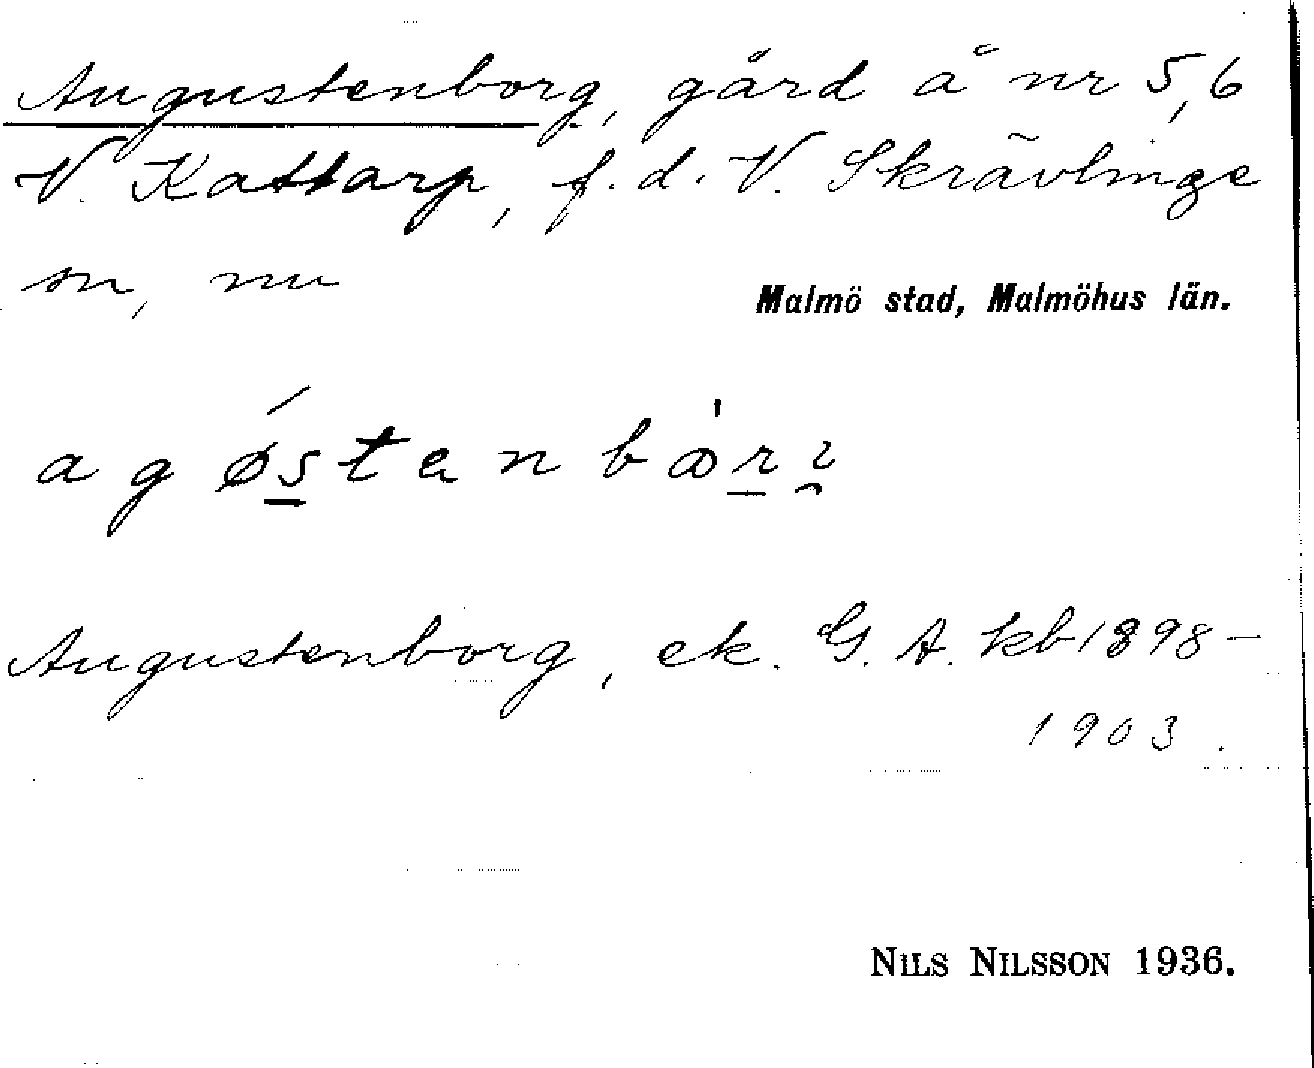 Augustenborg, gård å nr 5,6
V. Kattarp, f. d. V. Skrävlinge
sn, nu
Malmö stad, Malmöhus län.
Augustenborg, ek. G. A. kb 1898–
1903.
NILS NILSSON 1936.